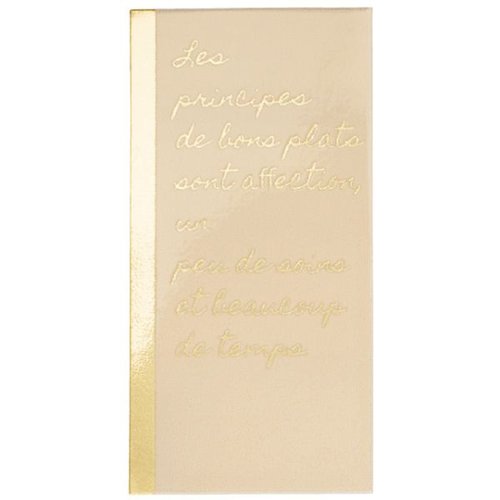 Les
principes
de bons plats
sont affection,
un
peu de soins
et beaucoup
de temps